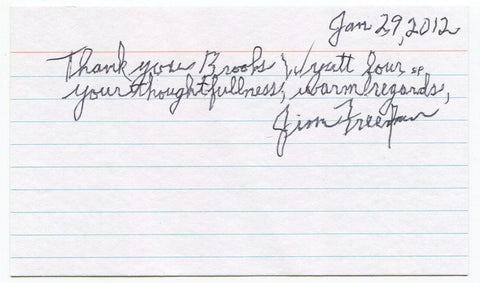 Jan 29, 2012
Thank you Brooks & Wyatt four sp
your thoughtfullness, warm regards,
Jim Freeman